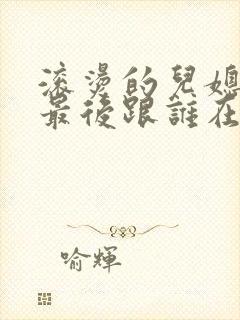 滚燙的兒媳
最後跟誰在
喻輝